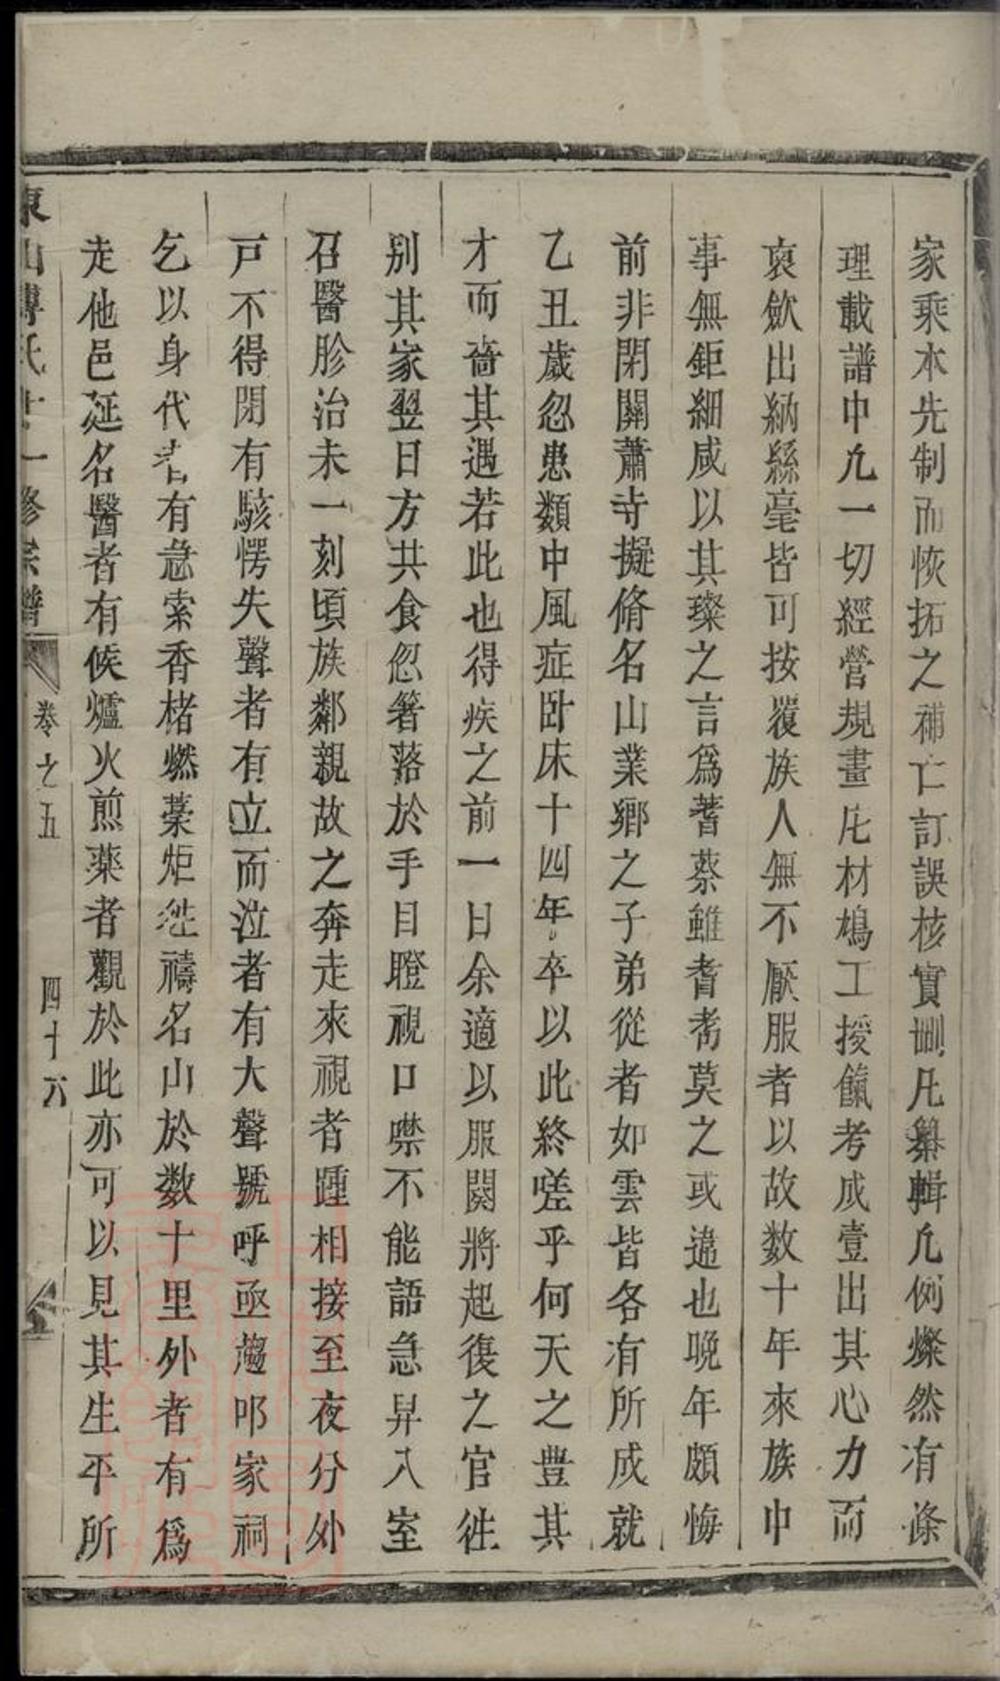 家乘本先制而恢拓之補亡訂誤核實刪凡纂輯凢例燦然有條
理載譜中凢一切經營規畫庀材鳩工授餼考成壹出其心力而
裒歛出納縣毫皆可按覆族人無不厭服者以故数十年來族中
事無鉅細咸以其璨之言爲蓍蔡雖耆耇莫之或違也晚年頗悔
前非閉關蕭寺擬脩名山業鄉之子弟從者如雲皆各有所成就
乙丑歲忽患類中風症卧床十四年卒以此終嗟乎何天之豊其
才而嗇其遇若此也得疾之前一日余適以服闋將起復之官徃
别其家翌日方共食忽箸落於手目瞪視口噤不能語急舁入室
召醫胗治未一刻頃族鄰親故之奔走來視者踵相接至夜分外
戸不得閉有駭愕失聲者有立而泣者有大聲號呼亟趨叩家祠
乞以身代者有急索香楮燃藁炬徃禱名山於数十里外者有爲
走他邑延名醫者有候爐火煎藥者觀於此亦可以見其生平所
東山傅氏十一修宗譜 卷之五 四十六